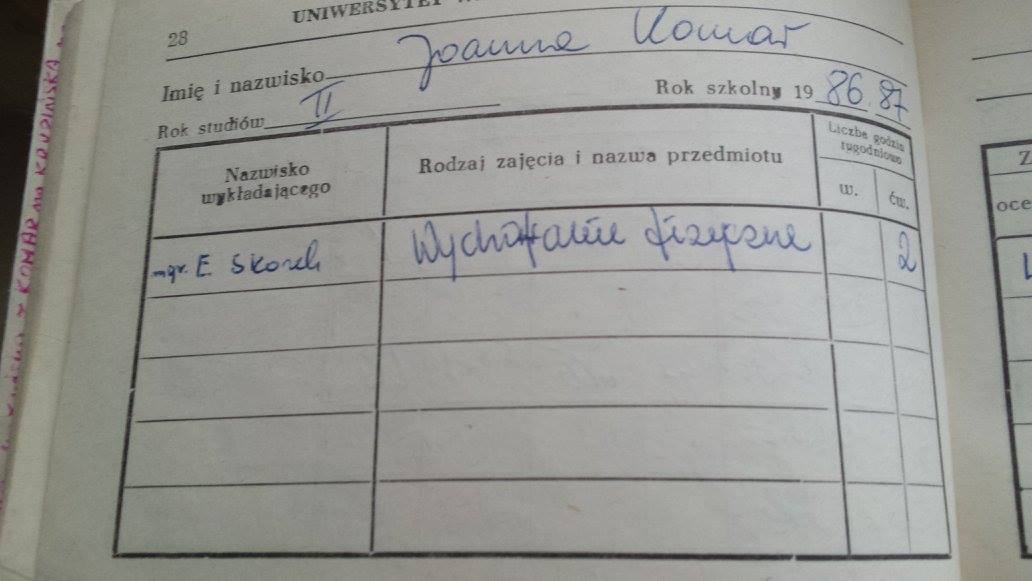 28
UNIWERSYTET
Imię i nazwisko Joanna Komar
Rok studiów II
Rok szkolny 19 86/87
Nazwisko wykładającego
Rodzaj zajęcia i nazwa przedmiotu
Liczba godzin tygodniowo
w.
ćw.
mgr. E Skorek
Wychowanie fizyczne
2
Z
oce